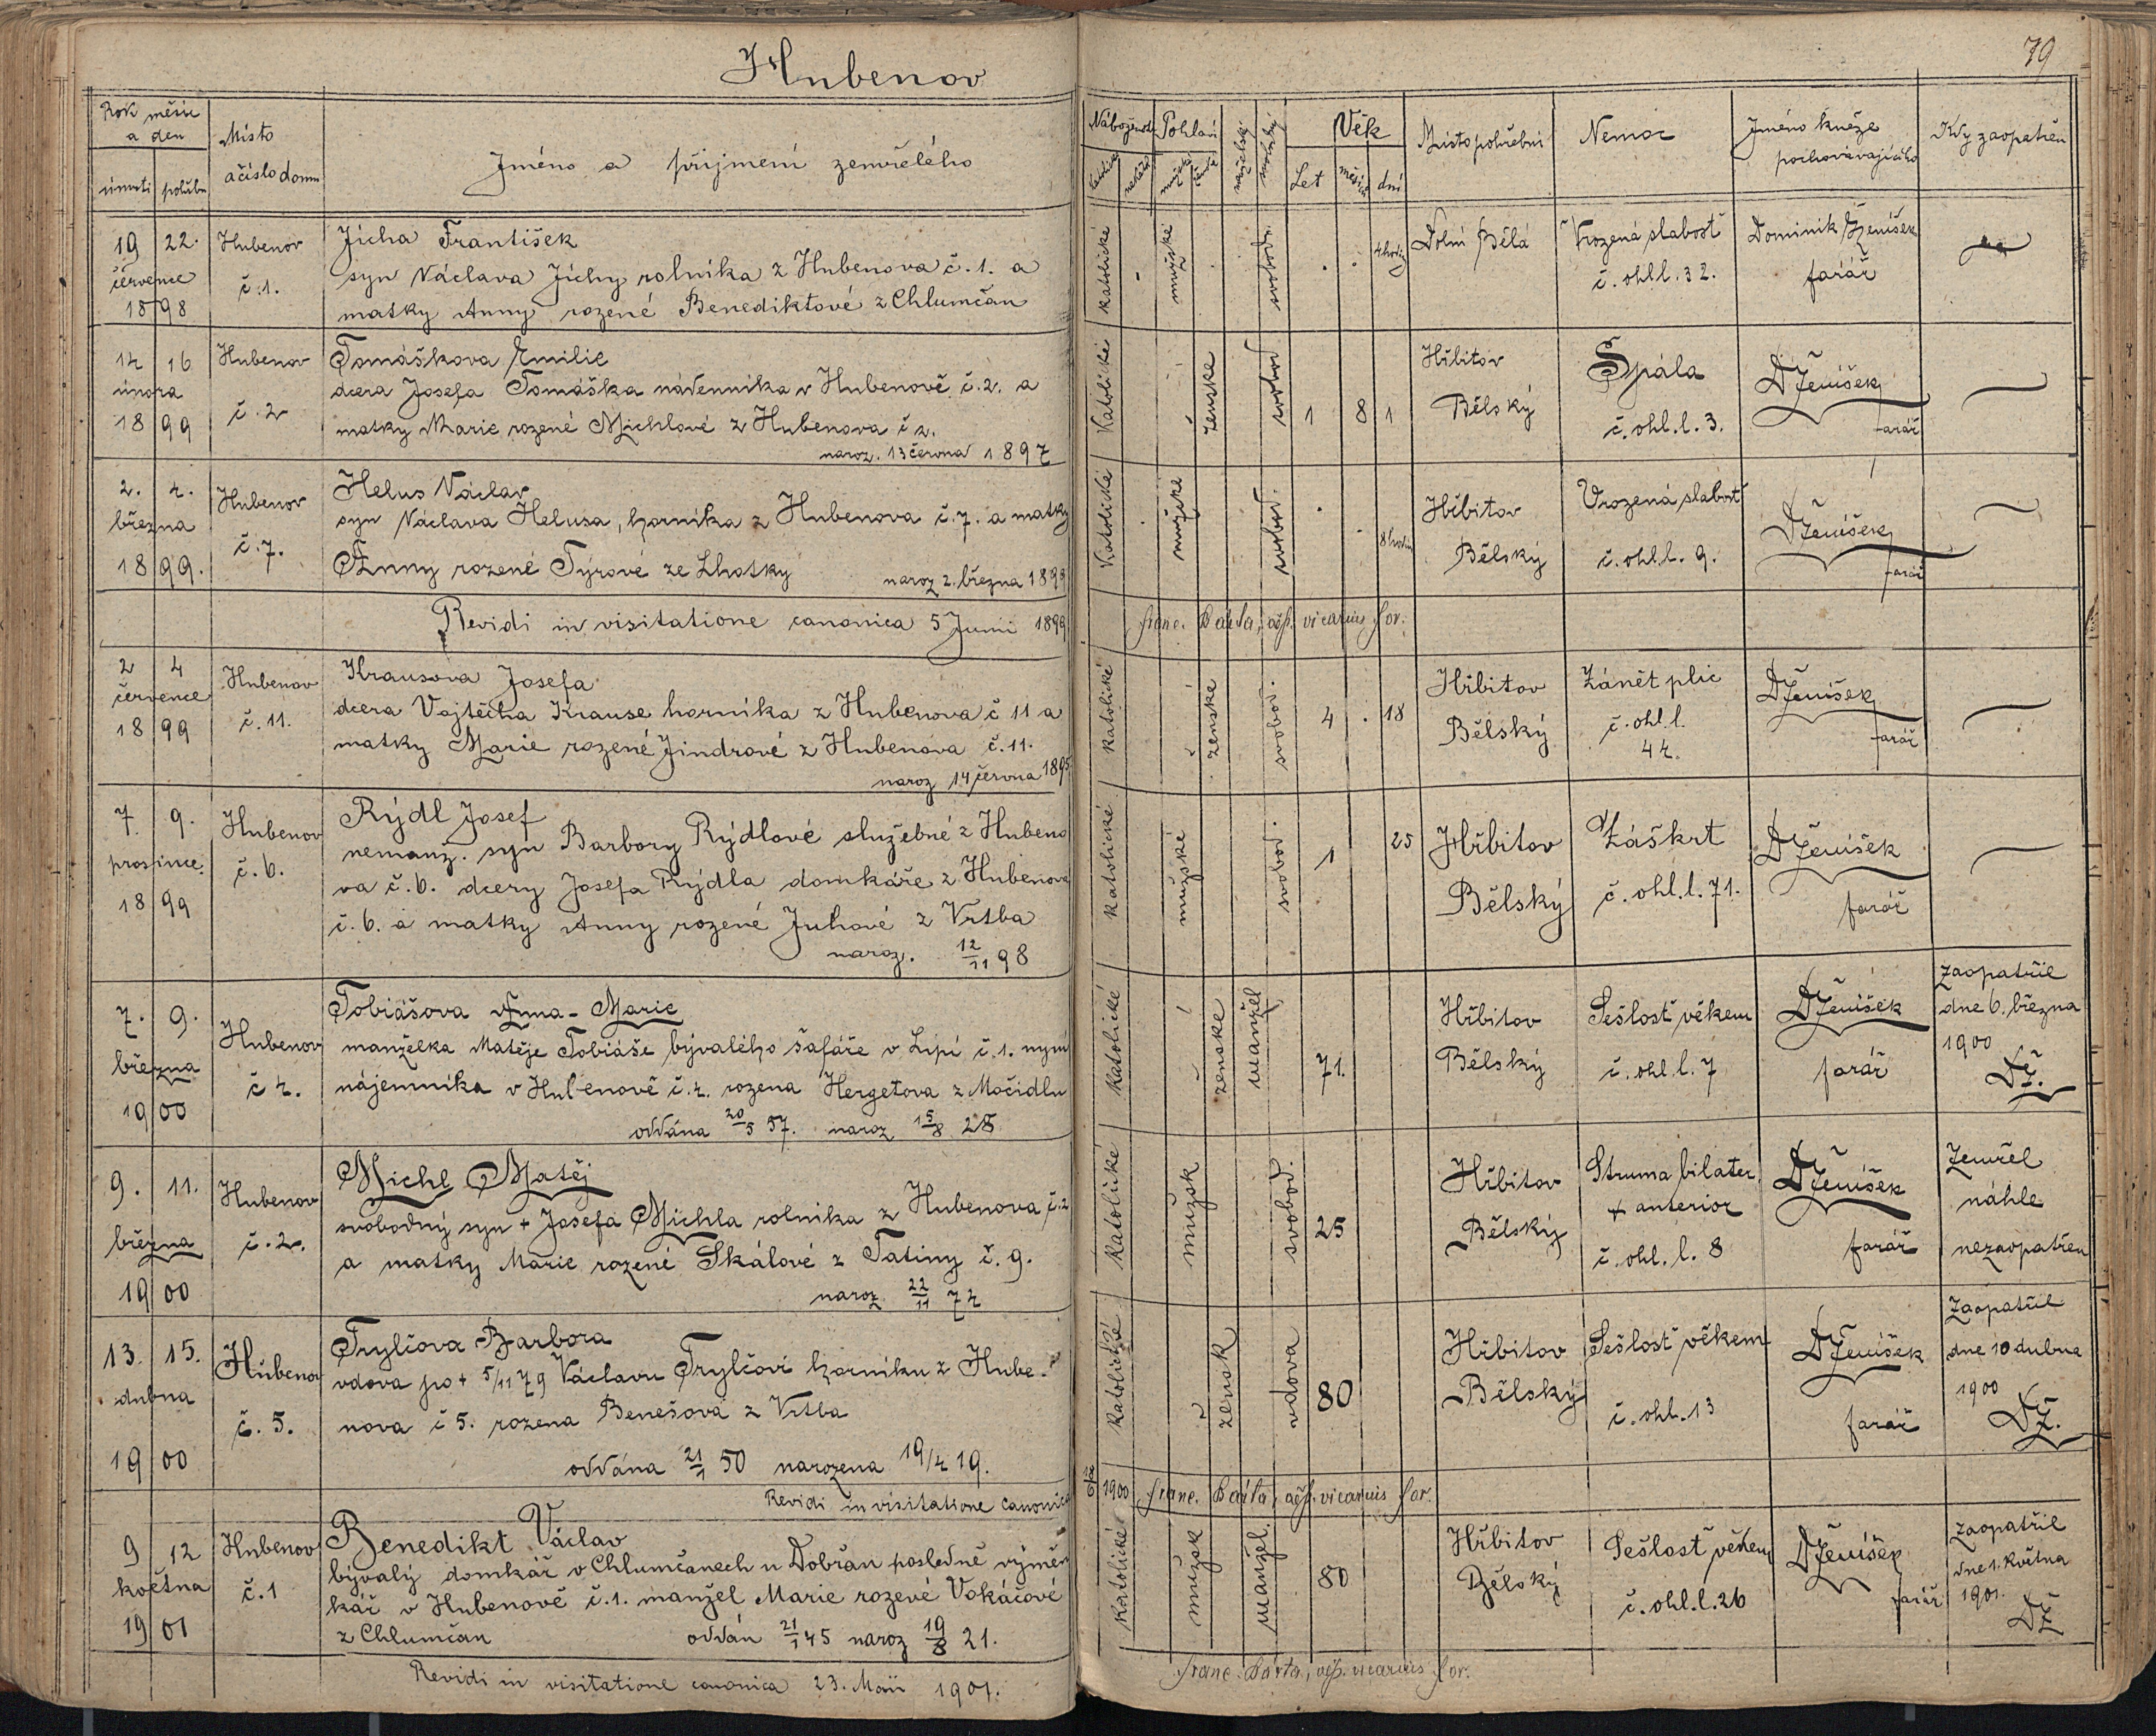 Hubenov
79
Rok měsíc
a den
úmrtí pohřbu
Místo
a číslo domu
Jméno a příjmení zemřelého
Náboženst. Pohlaví
katolické nekatol.
mužské ženské
manželský
nemanželský
Věk
Let měsíců dní
Místo pohřební
Nemoc
Jméno kněze
pochovávajícího
Kdy zaopatřen
19 22.
července
1898
Hubenov
č. 1.
Jícha František
syn Václava Jíchy rolníka z Hubenova č. 1. a
matky Anny rozené Benediktové z Chlumčan
katolické
mužské
svobod.
4 hodin
Dolní Bělá
Vrozená slabost
č. ohl.l. 32.
Dominik Ženíšek
farář
14 16
února
1899
Hubenov
č. 2
Tomáškova Emilie
dcera Josefa Tomáška nádenníka v Hubenově č. 2. a
matky Marie rozené Michlové z Hubenova č 2.
naroz. 13 června 1897
Katolické
ženské
svobod
1 8 1
Hřbitov
Bělský
Spála
č. ohl. l. 3.
DŽeníšek
farář
2. 4.
března
1899.
Hubenov
č. 7.
Helus Václav
syn Václava Helusa, horníka z Hubenova č. 7. a matky
Anny rozené Týrové ze Lhotky
naroz 2. března 1899
Katolické
mužské
svobod.
8 hodin
Hřbitov
Bělský
Vrozená slabost
č. ohl.l. 9.
DŽeníšek
farář
Revidi in visitatione canonica 5 Junii 1899
franc. Bárta, vicarius for.
2 4
července
1899
Hubenov
č. 11.
Krausova Josefa
dcera Vojtěcha Krause horníka z Hubenova č 11 a
matky Marie rozené Jindrové z Hubenova č. 11.
naroz 14 června 1895
Katolické
ženské
svobod.
4 . 18
Hřbitov
Bělský
Zánět plic
č. ohl. l.
44.
DŽeníšek
farář
7. 9.
prosince.
1899
Hubenov
č. 6.
Rýdl Josef
nemanž. syn Barbory Rýdlové služebné z Hubeno
va č. 6. dcery Josefa Rýdla domkáře z Hubenova
č. 6. a matky Anny rozené Juhové z Vrtba
naroz. 12/11 98
Katolické
mužské
svobod.
1 25
Hřbitov
Bělský
Záškrt
č. ohl.l. 71.
DŽeníšek
farář
7. 9.
března
1900
Hubenov
č 4.
Tobiášova Anna-Marie
manželka Matěje Tobiáše bývalého šafáře v Lipí č. 1. nyní
nájemníka v Hubenově č. 4. rozena Hergetova z Močidlu
oddána 20/5 57. naroz 15/8 28
Katolické
ženské
manžel
71.
Hřbitov
Bělský
Sešlost věkem
č. ohl. l. 7
DŽeníšek
farář
Zaopatřil
dne 6. března
1900
DŽ.
9. 11.
března
1900
Hubenov
č. 2.
Michl Matěj
svobodný syn + Josefa Michla rolníka z Hubenova č. 2
a matky Marie rozené Skálové z Tatiny č. 9.
naroz 22/11 74
Katolické
mužsk
svobod.
25
Hřbitov
Bělský
Struma bilater.
+ anterior
č. ohl. l. 8
DŽeníšek
farář
Zemřel
náhle
nezaopatřen
13. 15.
dubna
1900
Hubenov
č. 5.
Trylčova Barbora
vdova po + 5/11 79 Václavu Trylčovi horníku z Hube-
nova č 5. rozena Benešova z Vrtba
oddána 21/1 50 narozena 19/4 19.
Katolické
žensk
vdova
80
Hřbitov
Bělský
Sešlost věkem
č. ohl. 13
DŽeníšek
farář
Zaopatřil
dne 10 dubna
1900
DŽ.
Revidi in visitatione canonica
1900 franc. Bárta, vicarius for.
9 12
května
1901
Hubenov
č. 1
Benedikt Václav
bývalý domkář v Chlumčanech u Dobřan posledně výměn
kář v Hubenově č. 1. manžel Marie rozené Vokáčové
z Chlumčan oddán 21/1 45 naroz 19/8 21.
Katolické
mužsk
manžel.
80
Hřbitov
Bělský
Sešlost věkem
č. ohl. l. 26
DŽeníšek
farář
Zaopatřil
dne 1. května
1901.
DŽ
Revidi in visitatione canonica 23. Maii 1901.
franc. Bárta, vicarius for.